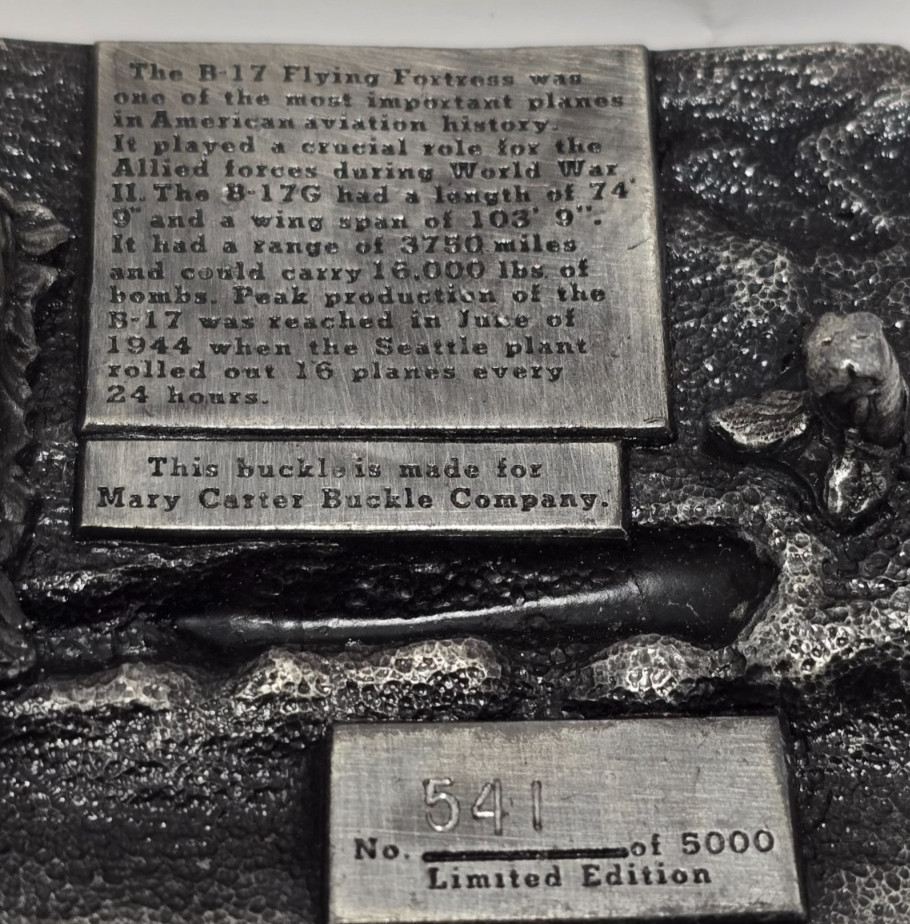 The B-17 Flying Fortress was
one of the most important planes
in American aviation history.
It played a crucial role for the
Allied forces during World War
II. The B-17G had a length of 74'
9" and a wing span of 103' 9".
It had a range of 3750 miles
and could carry 16.000 lbs. of
bombs. Peak production of the
B-17 was reached in June of
1944 when the Seattle plant
rolled out 16 planes every
24 hours.
This buckle is made for
Mary Carter Buckle Company.
541
No. of 5000
Limited Edition